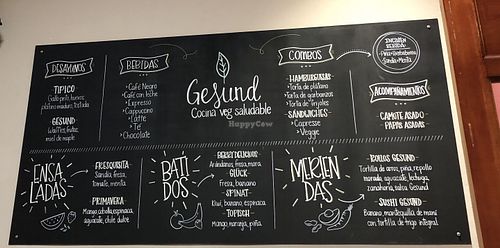 DESAYUNOS
TIPICO
Gallo pinto, huevos,
platano maduro, tostada
GESUND
Waffles, frutas,
miel de maple
BEBIDAS
• Café Negro
• Café con leche
• Expresso
• Cappuccino
• Latte
• Té
• Chocolate
Gesund
Cocina veg saludable
HappyCow
COMBOS
HAMBURGUESAS
• Torta de plátano
• Torta de garbanzos
• Torta de frijoles
SANDWICHES
• Capresse
• Veggie
INCLUYEN
BEBIDA
Sandía • Menta
ACOMPAÑAMIENTOS
CAMOTE ASADO
PAPAS ASADAS
ENSALADAS
FRESQUSITA
Sandia, fresa,
tomate, menta
PRIMAVERA
Mango, cebolla, espinaca,
aguacate, chile dulce
BATIDOS
BERRYDELICIOUS
Arándanos, fresa, mora
GLÜCK
Fresa, banano
SPINAT
Kiwi, banano, espinaca
TOPISCH
Mango, naranja, piña
MERIENDAS
ROLLOS GESUND
Tortilla de arroz, pina, repollo
morado, aguacate, lechuga,
zanahoria, salsa Gesund
SUSHI GESUND
Banano, mantequilla de maní
con tortilla de trigo integral